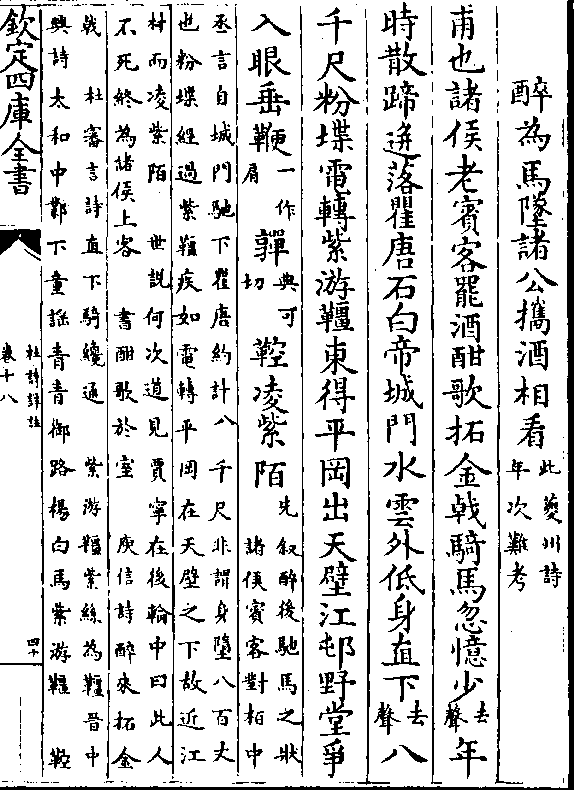 醉為馬墜諸公攜酒相看此夔州詩年次難考
甫也諸侯老賓客罷酒酣歌拓金戟騎馬忽憶少去聲年
時散蹄迸落瞿唐石白帝城門水雲外低身直下去聲八
千尺粉堞電轉紫游韁東得平岡出天壁江邨野堂爭
入眼垂鞭一作肩嚲典可切鞚凌紫陌先叙醉後馳馬之狀諸侯賓客對柏中
丞言自城門馳下瞿唐約計八千尺非謂身墮八百丈
也粉堞經過紫韁疾如電轉平岡在天壁之下故近江
村而凌紫陌 世說何次道見賈寧在後輪中曰此人
不死終為諸侯上客 書酣歌於室 庾信詩醉來拓金
戟 杜審言詩直下騎纔通 紫游韁紫絲為韁晉中
興詩太和中鄴下童謡青青御路楊白馬紫游韁 鞚
欽定四庫全書
杜詩詳註
卷十八
四十